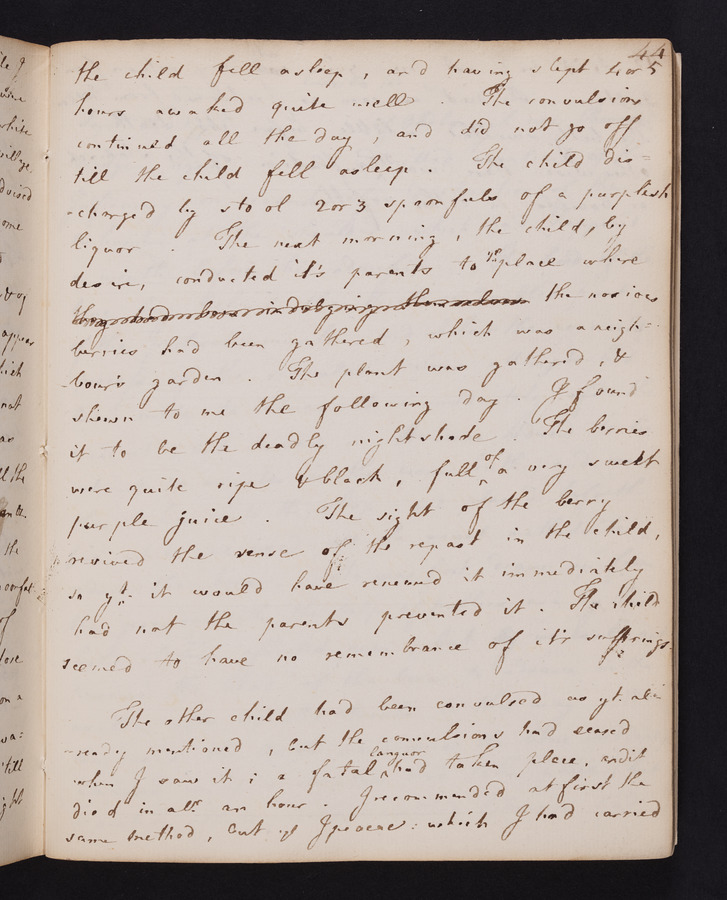 44
the child fell asleep, and having slept 4 or 5
hours awaked quite well. The convulsions
continued all the day, and did not go off
till the child fell asleep. The child dis=
-charged by stool 2 or 3 spoonfuls of a purplish
liquor. The next morning, the child, by
desire, conducted it's parents to ye place where
the noxious
berries had been gathered, which was a neigh=
-bour's garden. The plant was gathered, &
shewn to me the following day. I found
it to be the deadly nightshade. The berries
were quite ripe & black, full of a very sweet
purple juice. The sight of the berry
revived the sense of the repast in the child,
so yt. it would have renewed it immediately
had not the parents prevented it. The child
seemed to have no remembrance of it's sufferings.
The other child had been convulsed as yt. al=
-ready mentioned, but the convulsions had ceased
when I saw it; a fatal languor had taken place, and it
died in an hour. I recommended at first the
same method, but ye Ipecac: which I had carried